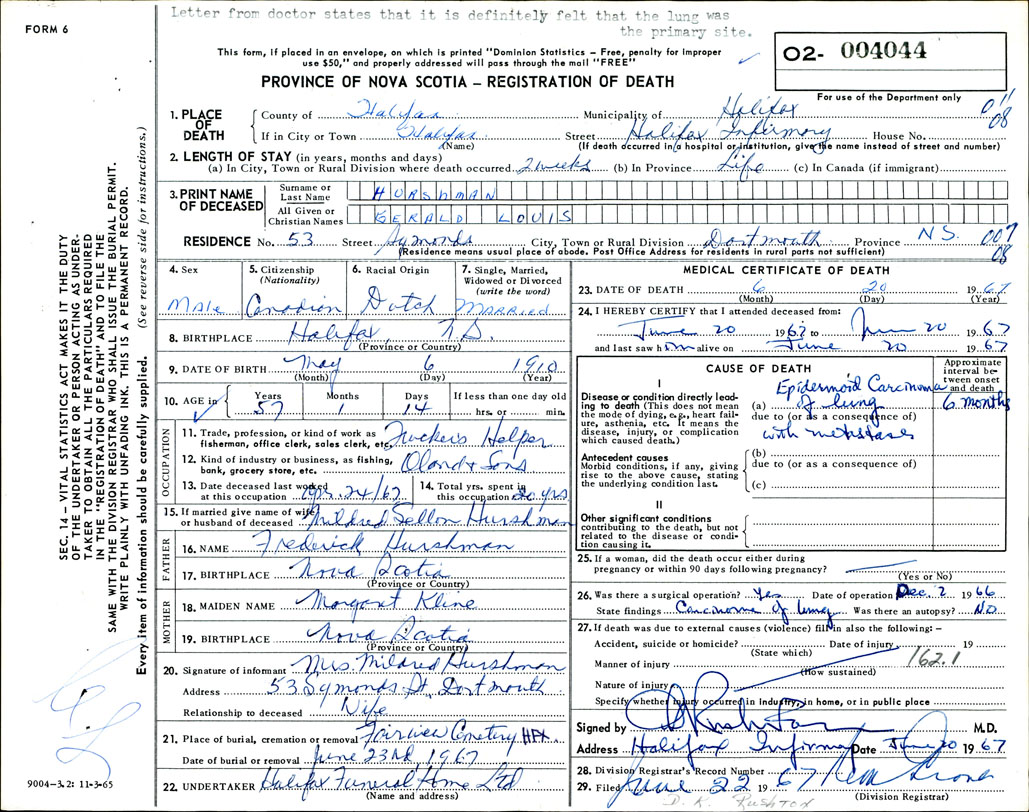 Letter from doctor states that it is definitely felt that the lung was
the primary site.
FORM 6
This form, if placed in an envelope, on which is printed "Dominion Statistics – Free, penalty for improper
use $50," and properly addressed will pass through the mail "FREE"
O2- 004044
PROVINCE OF NOVA SCOTIA – REGISTRATION OF DEATH
For use of the Department only
011
08
1. PLACE OF DEATH
County of Halifax Municipality of Halifax
If in City or Town Halifax Street Halifax Infirmary House No.
(Name) (If death occurred in a hospital or institution, give the name instead of street and number)
2. LENGTH OF STAY (in years, months and days)
(a) In City, Town or Rural Division where death occurred 2 weeks (b) In Province Life (c) In Canada (if immigrant)
3. PRINT NAME OF DECEASED
Surname or Last Name HURSHMAN
All Given or Christian Names GERALD LOUIS
RESIDENCE No. 53 Street Symonds City, Town or Rural Division Dartmouth Province N.S. 007
08
(Residence means usual place of abode. Post Office Address for residents in rural parts not sufficient)
4. Sex
Male
5. Citizenship
(Nationality)
Canadian
6. Racial Origin
Dutch
7. Single, Married,
Widowed or Divorced
(write the word)
MARRIED
8. BIRTHPLACE Halifax N.S.
(Province or Country)
9. DATE OF BIRTH May 6 1910
(Month) (Day) (Year)
10. AGE in
Years Months Days If less than one day old
57 1 14 hrs. or min.
OCCUPATION
11. Trade, profession, or kind of work as
fisherman, office clerk, sales clerk, etc. Truckers Helper
12. Kind of industry or business, as fishing,
bank, grocery store, etc. Oland & Sons
13. Date deceased last worked
at this occupation Apr. 24/67
14. Total yrs. spent in
this occupation 20 yrs
15. If married give name of wife
or husband of deceased Mildred Sellon Hurshman
FATHER
16. NAME Frederick Hurshman
17. BIRTHPLACE Nova Scotia
(Province or Country)
MOTHER
18. MAIDEN NAME Margaret Kline
19. BIRTHPLACE Nova Scotia
(Province or Country)
20. Signature of informant Mrs. Mildred Hurshman
Address 53 Symonds St. Dartmouth
Relationship to deceased Wife
21. Place of burial, cremation or removal Fairview Cemetery HFX.
Date of burial or removal June 23rd 1967
22. UNDERTAKER Halifax Funeral Home Ltd
(Name and address)
MEDICAL CERTIFICATE OF DEATH
23. DATE OF DEATH 6 20 1967
(Month) (Day) (Year)
24. I HEREBY CERTIFY that I attended deceased from:
June 20 1967 to June 20 1967
and last saw him alive on June 20 1967
CAUSE OF DEATH
Approximate
interval be-
tween onset
and death
I
Disease or condition directly lead-
ing to death (This does not mean
the mode of dying, e.g., heart fail-
ure, asthenia, etc. It means the
disease, injury, or complication
which caused death.)
Epidermoid Carcinoma
(a) of lung 6 months
due to (or as a consequence of)
with metastases
Antecedent causes
Morbid conditions, if any, giving
rise to the above cause, stating
the underlying condition last.
(b)
due to (or as a consequence of)
(c)
II
Other significant conditions
contributing to the death, but not
related to the disease or condi-
tion causing it.
25. If a woman, did the death occur either during
pregnancy or within 90 days following pregnancy?
(Yes or No)
26. Was there a surgical operation? Yes Date of operation Dec. 2 1966
State findings Carcinoma of lung Was there an autopsy? NO
27. If death was due to external causes (violence) fill in also the following: –
Accident, suicide or homicide? Date of injury 19
(State which)
Manner of injury 162.1
(How sustained)
Nature of injury
Specify whether injury occurred in industry, in home, or in public place
Signed by Rushton M.D.
Address Halifax Infirmary Date June 20 1967
28. Division Registrar's Record Number
29. Filed June 22 1967
(Division Registrar)
D. K. RUSHTON
SEC. 14 – VITAL STATISTICS ACT MAKES IT THE DUTY
OF THE UNDERTAKER OR PERSON ACTING AS UNDER-
TAKER TO OBTAIN ALL THE PARTICULARS REQUIRED
IN THE "REGISTRATION OF DEATH" AND TO FILE THE
SAME WITH THE DIVISION REGISTRAR WHO SHALL ISSUE THE BURIAL PERMIT.
WRITE PLAINLY WITH UNFADING INK. THIS IS A PERMANENT RECORD.
Every item of information should be carefully supplied. (See reverse side for instructions.)
9004-3.2: 11-3-65